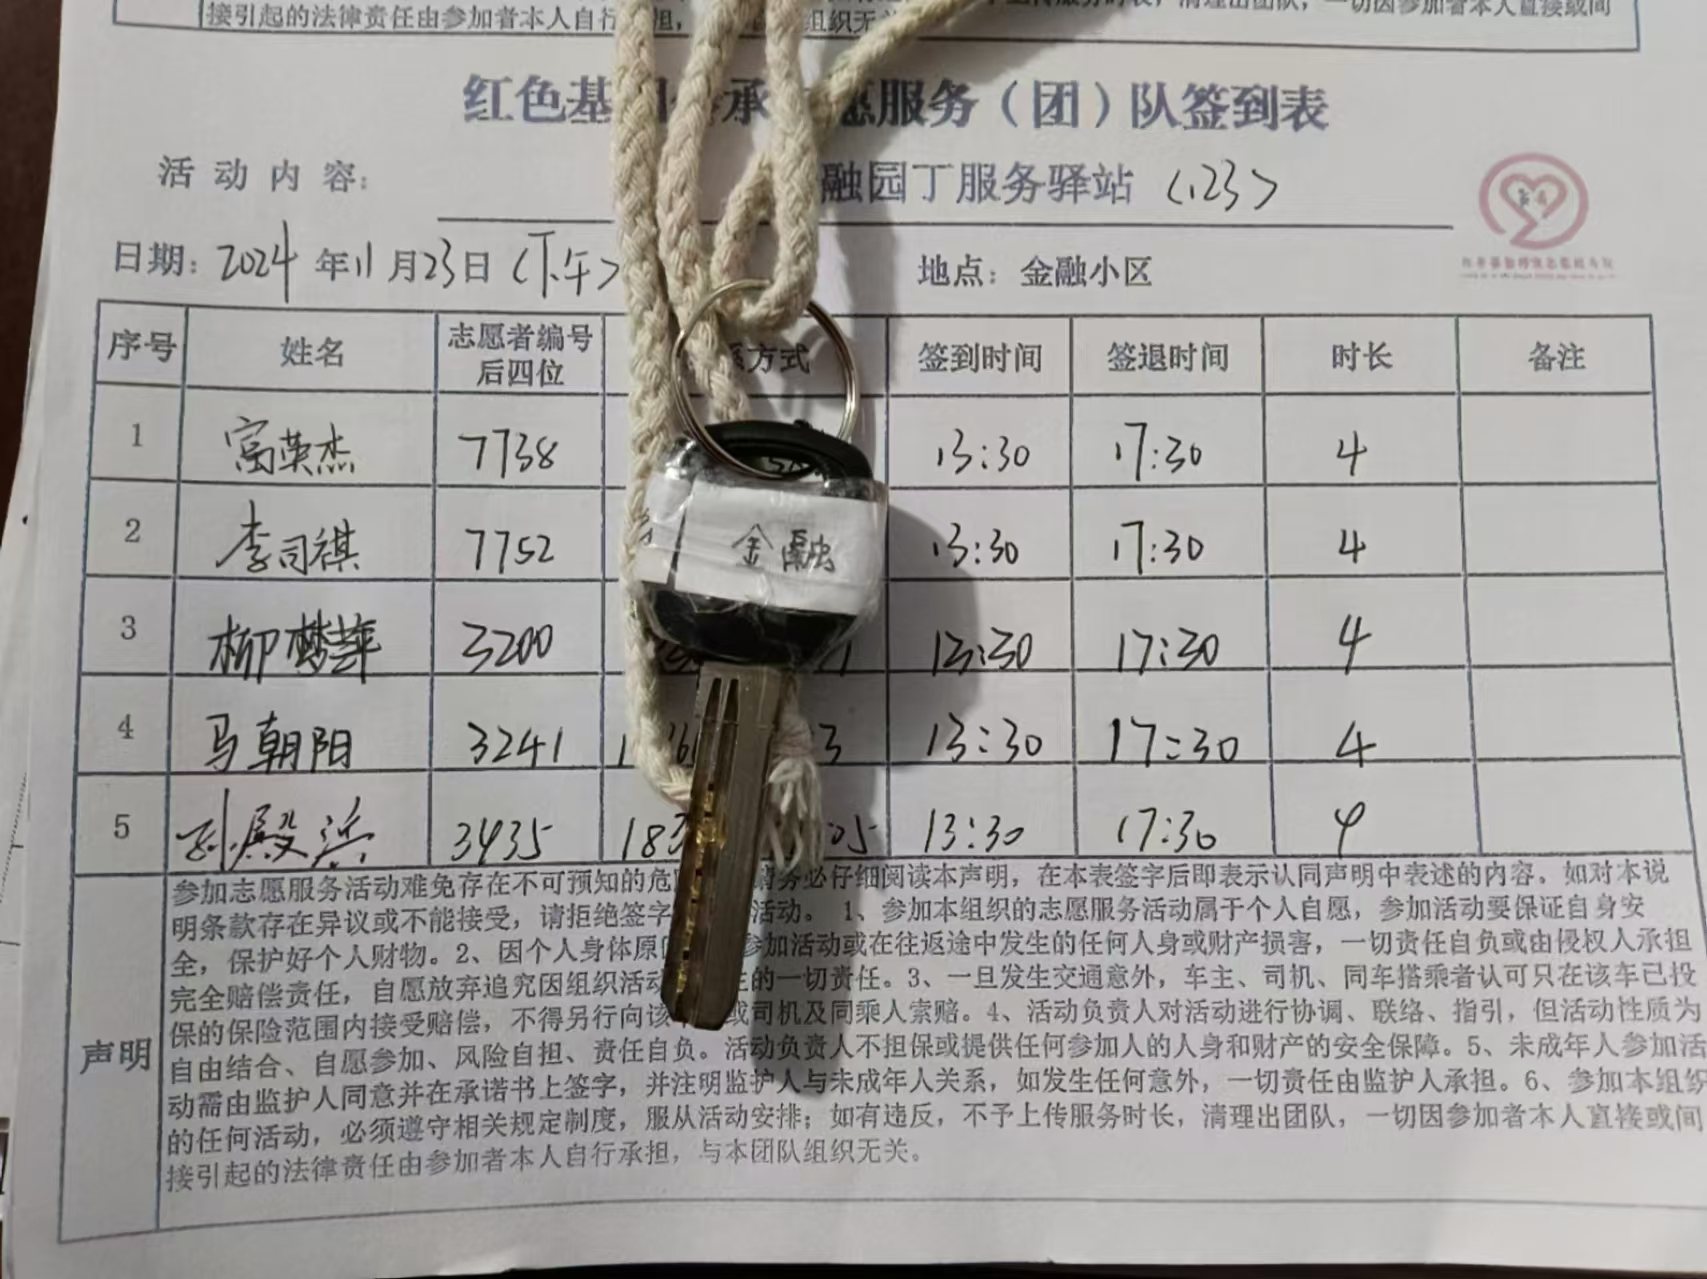 接引起的法律责任由参加者本人自行 组织无关
红色基 承 愿服务（团）队签到表
活动内容： 融园丁服务驿站（123）
日期：2024年11月23日（下午） 地点：金融小区
序号 姓名 志愿者编号后四位 系方式 签到时间 签退时间 时长 备注
1 富英杰 7738 13:30 17:30 4
2 李司祺 7752 13:30 17:30 4
3 柳梦萍 3200 13:30 17:30 4
4 马朝阳 3241 13:30 17:30 4
5 孙殿 3435 183 05 13:30 17:30 4
金融
参加志愿服务活动难免存在不可预知的危 请务必仔细阅读本声明，在本表签字后即表示认同声明中表述的内容。如对本说
明条款存在异议或不能接受，请拒绝签字 活动。1、参加本组织的志愿服务活动属于个人自愿，参加活动要保证自身安
全，保护好个人财物。2、因个人身体原 参加活动或在往返途中发生的任何人身或财产损害，一切责任自负或由侵权人承担
完全赔偿责任，自愿放弃追究因组织活动 的一切责任。3、一旦发生交通意外，车主、司机、同车搭乘者认可只在该车已投
保的保险范围内接受赔偿，不得另行向该 或司机及同乘人索赔。4、活动负责人对活动进行协调、联络、指引，但活动性质为
声明 自由结合、自愿参加、风险自担、责任自负。活动负责人不担保或提供任何参加人的人身和财产的安全保障。5、未成年人参加活
动需由监护人同意并在承诺书上签字，并注明监护人与未成年人关系，如发生任何意外，一切责任由监护人承担。6、参加本组织
的任何活动，必须遵守相关规定制度，服从活动安排；如有违反，不予上传服务时长，清理出团队，一切因参加者本人直接或间
接引起的法律责任由参加者本人自行承担，与本团队组织无关。